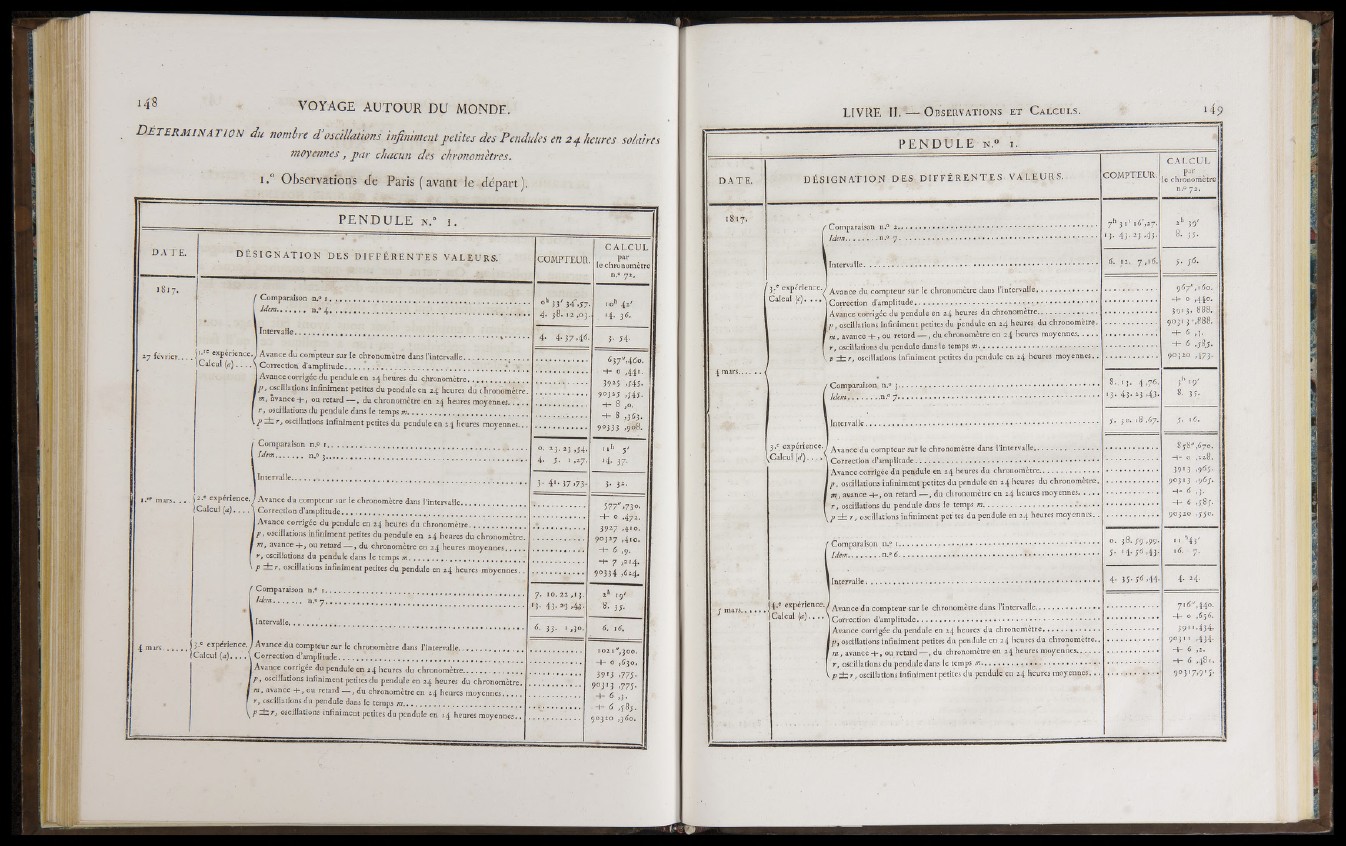 148 VOYAGE AUTOUR DU MONDE.
DÉTERMINATION du nombre d'oscillations infiniment petites des Pendules en 24 heures solaires
moyennes, par chacun des chronomètres.
1.° Observations de Paris (avant le départ).
PENDULE N.° 1.
DATE. DÉSIGNATION DES DIFFÉRENTES VALEURS. COMPTEUR. CALCUL par le chronomètre n.° 72.
1817.
Comparaison n.° 1. 0h 33' 34",57. 10h 42'
Idem n.° 4. 4. 38. 12,03. 14. 36.
Intervalle 4. 4. 37,46. 3. 54.
27 février. 1.re expérience. Avance du compteur sur le chronomètre dans l'intervalle 637",460.
Calcul (a) Correction d'amplitude + 0,441.
Avance corrigée du pendule en 24 heures du chronomètre 3925,545.
p, oscillations infiniment petites du pendule en 24 heures du chronomètre. 90325,545.
m, avance +, ou retard —, du chronomètre en 24 heures moyennes + 8,0.
r, oscillations du pendule dans le temps m + 8,363.
p ± r, oscillations infiniment petites du pendule en 24 heures moyennes 90333,908.
Comparaison n.° 1. 0. 23. 23,54. 11h 5'
Idem n.° 3. 4. 5. 1,27. 14. 37.
Intervalle 3. 41. 37,73. 3. 32.
1.er mars. 2.e expérience. Avance du compteur sur le chronomètre dans l'intervalle 577",730.
Calcul (a) Correction d'amplitude + 0,472.
Avance corrigée du pendule en 24 heures du chronomètre 3927,410.
p, oscillations infiniment petites du pendule en 24 heures du chronomètre. 90327,410.
m, avance +, ou retard —, du chronomètre en 24 heures moyennes + 6,9.
r, oscillations du pendule dans le temps m + 7,214.
p ± r, oscillations infiniment petites du pendule en 24 heures moyennes 90334,624.
Comparaison n.° 1. 7. 10. 22,13. 2h 19'
Idem n.° 7. 13. 43. 23,43. 8. 35.
Intervalle 6. 33. 1,30. 6. 16.
4 mars 3.e expérience. Avance du compteur sur le chronomètre dans l'intervalle 1021",300.
Calcul (a) Correction d'amplitude + 0,630.
Avance corrigée du pendule en 24 heures du chronomètre 3913,775.
p, oscillations infiniment petites du pendule en 24 heures du chronomètre. 90313,775.
m, avance +, ou retard —, du chronomètre en 24 heures moyennes + 6,3.
r, oscillations du pendule dans le temps m + 6,585.
p ± r, oscillations infiniment petites du pendule en 24 heures moyennes 90320,360.
LIVRE II. — OBSERVATIONS ET CALCULS. 149
PENDULE N.° 1.
DATE. DÉSIGNATION DES DIFFÉRENTES VALEURS. COMPTEUR. CALCUL par le chronomètre n.° 72.
1817.
Comparaison n.° 2. 7h 31' 16",27. 2h 39'
Idem n.° 7. 13. 43. 23,43. 8. 35.
Intervalle 6. 12. 7,16. 5. 56.
3.e expérience. Avance du compteur sur le chronomètre dans l'intervalle 967",160.
Calcul (c) Correction d'amplitude + 0,440.
Avance corrigée du pendule en 24 heures du chronomètre 3913,888.
p, oscillations infiniment petites du pendule en 24 heures du chronomètre. 90313,888.
m, avance +, ou retard —, du chronomètre en 24 heures moyennes + 6,3.
r, oscillations du pendule dans le temps m + 6,585.
p ± r, oscillations infiniment petites du pendule en 24 heures moyennes 90320,473.
4 mars
Comparaison n.° 3. 8. 13. 4,76. 3h 19'
Idem n.° 7. 13. 43. 23,43. 8. 35.
Intervalle 5. 30. 18,67. 5. 16.
3.e expérience. Avance du compteur sur le chronomètre dans l'intervalle 858",670.
Calcul (d) Correction d'amplitude + 0,228.
Avance corrigée du pendule en 24 heures du chronomètre 3913,965.
p, oscillations infiniment petites du pendule en 24 heures du chronomètre. 90313,965.
m, avance +, ou retard —, du chronomètre en 24 heures moyennes + 6,3.
r, oscillations du pendule dans le temps m + 6,585.
p ± r, oscillations infiniment petites du pendule en 24 heures moyennes 90320,550.
Comparaison n.° 1. 0. 38. 59,99. 11h 43'
Idem n.° 6. 5. 14. 56,43. 16. 7.
Intervalle 4. 35. 56,44. 4. 24.
5 mars 4.e expérience. Avance du compteur sur le chronomètre dans l'intervalle 716",440.
Calcul (a) Correction d'amplitude + 0,656.
Avance corrigée du pendule en 24 heures du chronomètre 3911,434.
p, oscillations infiniment petites du pendule en 24 heures du chronomètre. 90311,434.
m, avance +, ou retard —, du chronomètre en 24 heures moyennes + 6,2.
r, oscillations du pendule dans le temps m + 6,481.
p ± r, oscillations infiniment petites du pendule en 24 heures moyennes 90317,915.